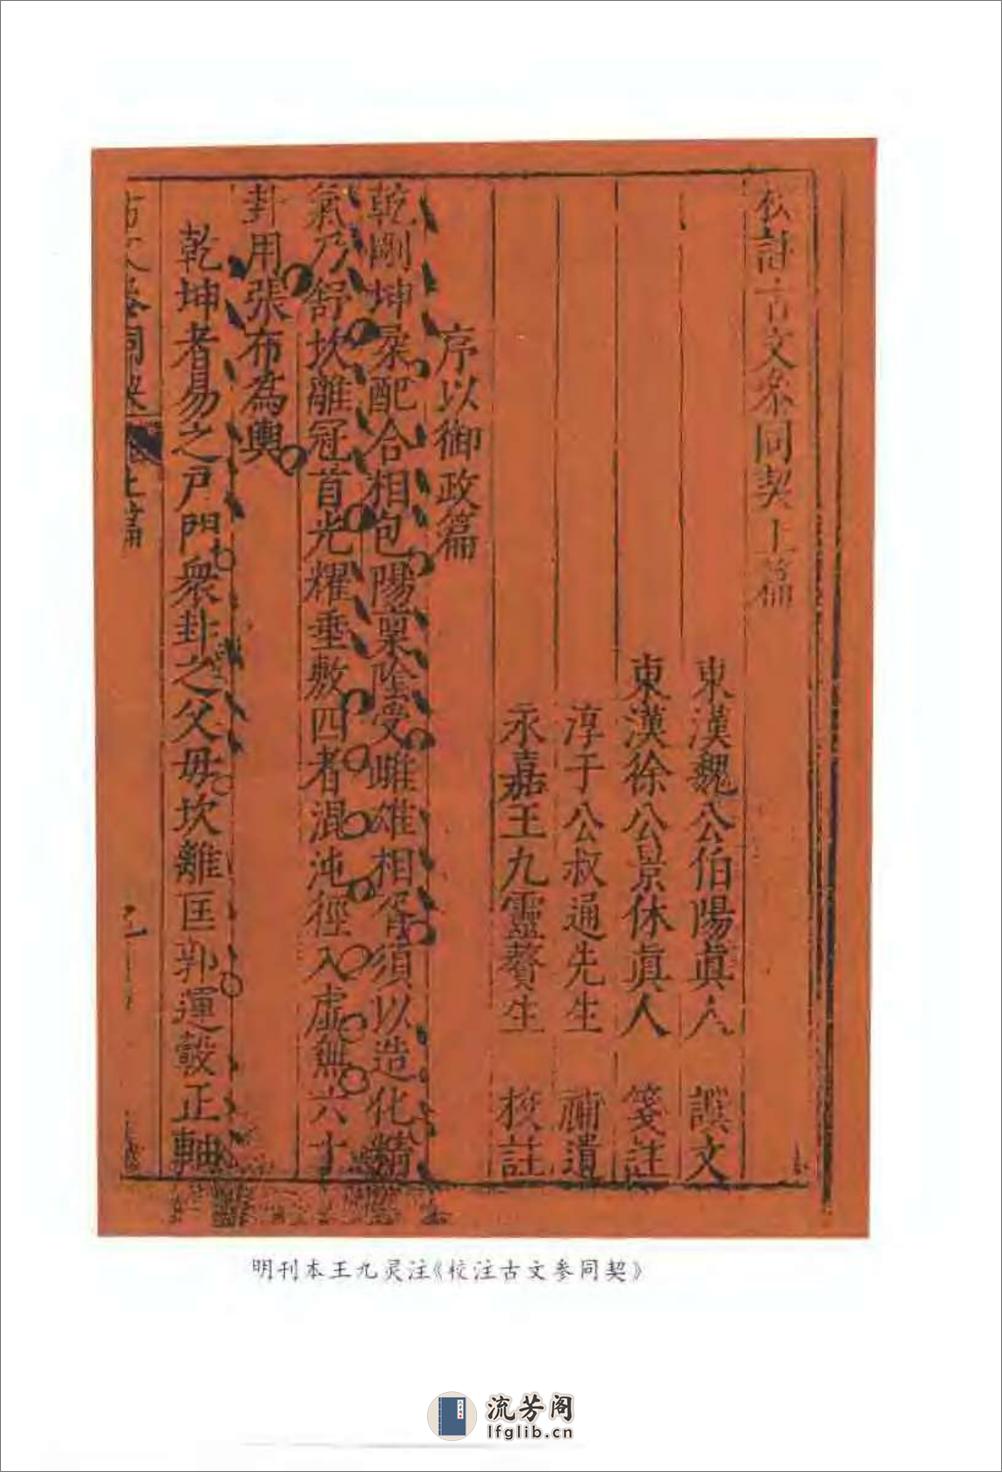 校註古文叅同契上篇
東漢魏公伯陽眞人 譔文
東漢徐公景休眞人 箋註
淳于公叔通先生 補遺
永嘉王九靈贅生 校註
序以御政篇
乾剛坤柔配合相包陽稟隂受雌雄相胥須以造化精
氣乃舒坎離冠首光耀垂敷四者混沌徑入虛無六十
卦用張布為輿
乾坤者易之戸門衆卦之父母坎離匡郭運轂正軸
古文叅同契 上篇
明刊本王九灵注《校注古文参同契》
流芳阁
lfglib.cn